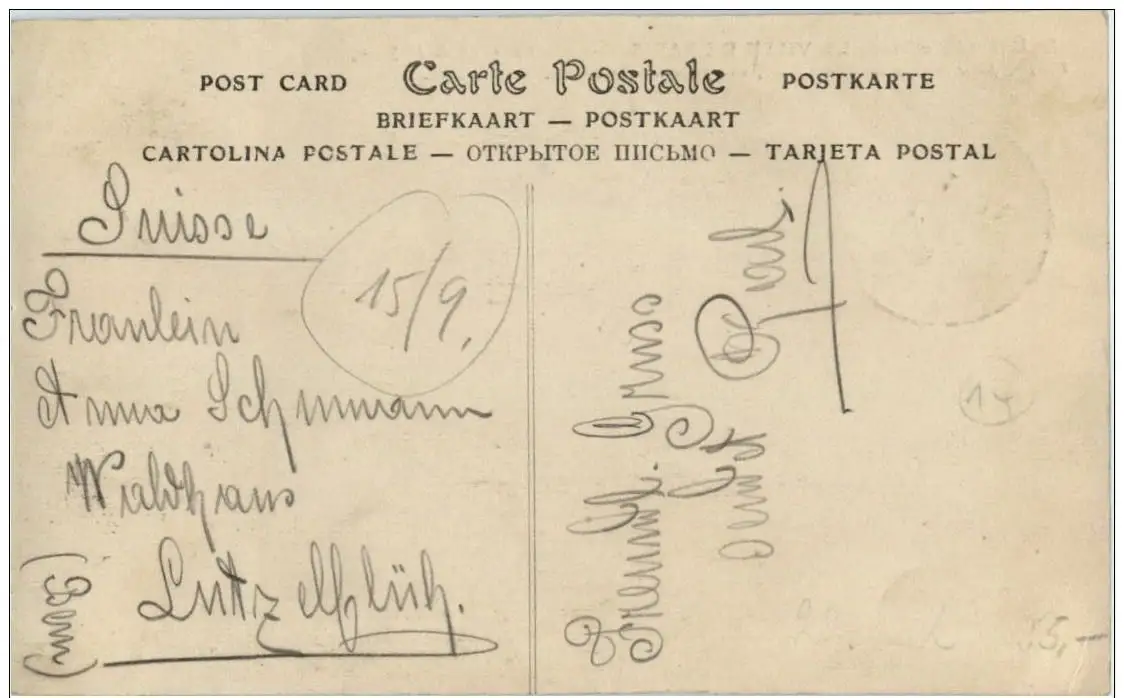 POST CARD Carte Postale POSTKARTE
BRIEFKAART — POSTKAART
CARTOLINA POSTALE — ОТКРЫТОЕ ПИСЬМО — TARJETA POSTAL
Suisse
15/9.
Fräulein
Anna Schumann
Waldhaus
Lützelflüh.
(Bern)
Freundl. Gruss
aus
Paris.
14
5,-